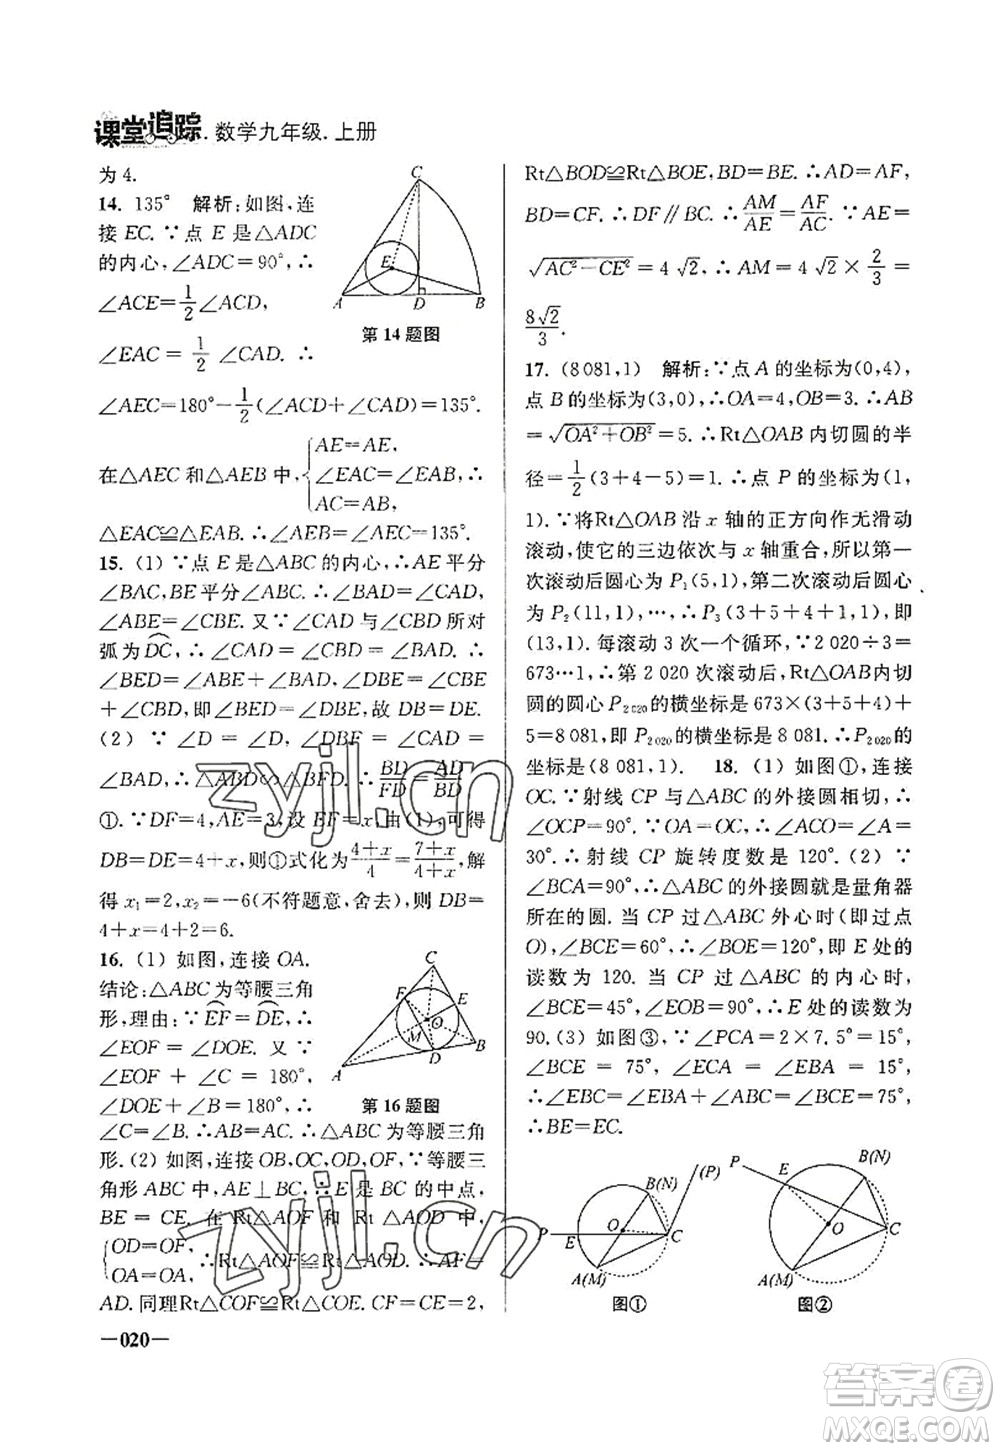 课堂追踪.数学九年级.上册
为 4.
14. 135° 解析:如图,连
接 EC. ∵点 E 是△ADC
的内心,∠ADC=90°,∴
∠ACE=1/2∠ADC,
∠EAC = 1/2 ∠CAD. ∴
∠AEC=180°−1/2(∠ACD+∠CAD)=135°.
C
E
A
D
B
第 14 题图
在△AEC 和△AEB 中,{AE=AE,
∠EAC=∠EAB,∴
AC=AB,
△EAC≌△EAB. ∴∠AEB=∠AEC=135°.
15. (1) ∵点 E 是△ABC 的内心,∴AE 平分
∠BAC,BE 平分∠ABC. ∴∠BAD=∠CAD,
∠ABE=∠CBE. 又∵∠CAD 与∠CBD 所对
弧为DC,∴∠CAD=∠CBD=∠BAD. ∴
∠BED=∠ABE+∠BAD,∠DBE=∠CBE
+∠CBD,即∠BED=∠DBE,故 DB=DE.
(2) ∵∠D = ∠D, ∠DBF = ∠CAD =
∠BAD,∴△ABD∽△BFD. ∴BD/FD=AD/BD
①. ∵DF=4,AE=3,设 EF=x,由(1)可得
DB=DE=4+x,则①式化为(4+x)/4=(7+x)/(4+x),解
得 x₁=2,x₂=−6(不符题意,舍去),则 DE=
4+x=4+2=6.
16. (1) 如图,连接 OA.
结论:△ABC 为等腰三角
形,理由:∵EF=DE,∴
∠EOF = ∠DOE. 又 ∵
∠EOF + ∠C = 180°,
∠DOE+∠B=180°,∴
C
F
E
O
M
B
D
A
第 16 题图
∠C=∠B. ∴AB=AC. ∴△ABC 为等腰三角
形. (2) 如图,连接 OB,OC,OD,OF,∵等腰三
角形 ABC 中,AE⊥BC,∴E 是 BC 的中点,
BE = CE. 在 Rt△AOF 和 Rt△AOD 中,
{OD=OF,
OA=OA,∴Rt△AOF≌Rt△AOD. ∴AF=
AD. 同理Rt△COF≌Rt△COE. CF=CE=2,
—020—
Rt△BOD≌Rt△BOE,BD=BE. ∴AD=AF,
BD=CF. ∴DF∥BC. ∴AM/AE=AF/AC. ∵AE=
√(AC²−CE²)=4√2,∴AM=4√2×2/3=
8√2/3.
17. (8 081,1) 解析:∵点 A 的坐标为(0,4),
点 B 的坐标为(3,0),∴OA=4,OB=3. ∴AB
=√(OA²+OB²)=5. ∴Rt△OAB 内切圆的半
径=1/2(3+4−5)=1. ∴点 P 的坐标为(1,
1). ∵将Rt△OAB 沿 x 轴的正方向作无滑动
滚动,使它的三边依次与 x 轴重合,所以第一
次滚动后圆心为 P₁(5,1),第二次滚动后圆心
为 P₂(11,1),…,∴P₃(3+5+4+1,1),即
(13,1). 每滚动 3 次一个循环,∵2 020÷3=
673…1,∴第 2 020 次滚动后,Rt△OAB 内切
圆的圆心 P₂₀₂₀的横坐标是 673×(3+5+4)+
5=8 081,即 P₂₀₂₀的横坐标是 8 081. ∴P₂₀₂₀的
坐标是(8 081,1). 18. (1) 如图①,连接
OC. ∵射线 CP 与△ABC 的外接圆相切,∴
∠OCP=90°. ∵OA=OC,∴∠ACO=∠A=
30°. ∴射线 CP 旋转度数是 120°. (2) ∵
∠BCA=90°,∴△ABC 的外接圆就是量角器
所在的圆. 当 CP 过△ABC 外心时(即过点
O),∠BCE=60°,∴∠BOE=120°,即 E 处的
读数为 120. 当 CP 过△ABC 的内心时,
∠BCE=45°,∠EOB=90°,∴E 处的读数为
90. (3) 如图③,∵∠PCA=2×7.5°=15°,
∠BCE = 75°, ∠ECA = ∠EBA = 15°. ∴
∠EBC=∠EBA+∠ABC=∠BCE=75°.
∴BE=EC.
B(N)
(P)
O
P
E
C
A(M)
图①
P
E
B(N)
O
C
A(M)
图②
zyjl.cn
zyjl.cn
答案卷
MXQE.COM